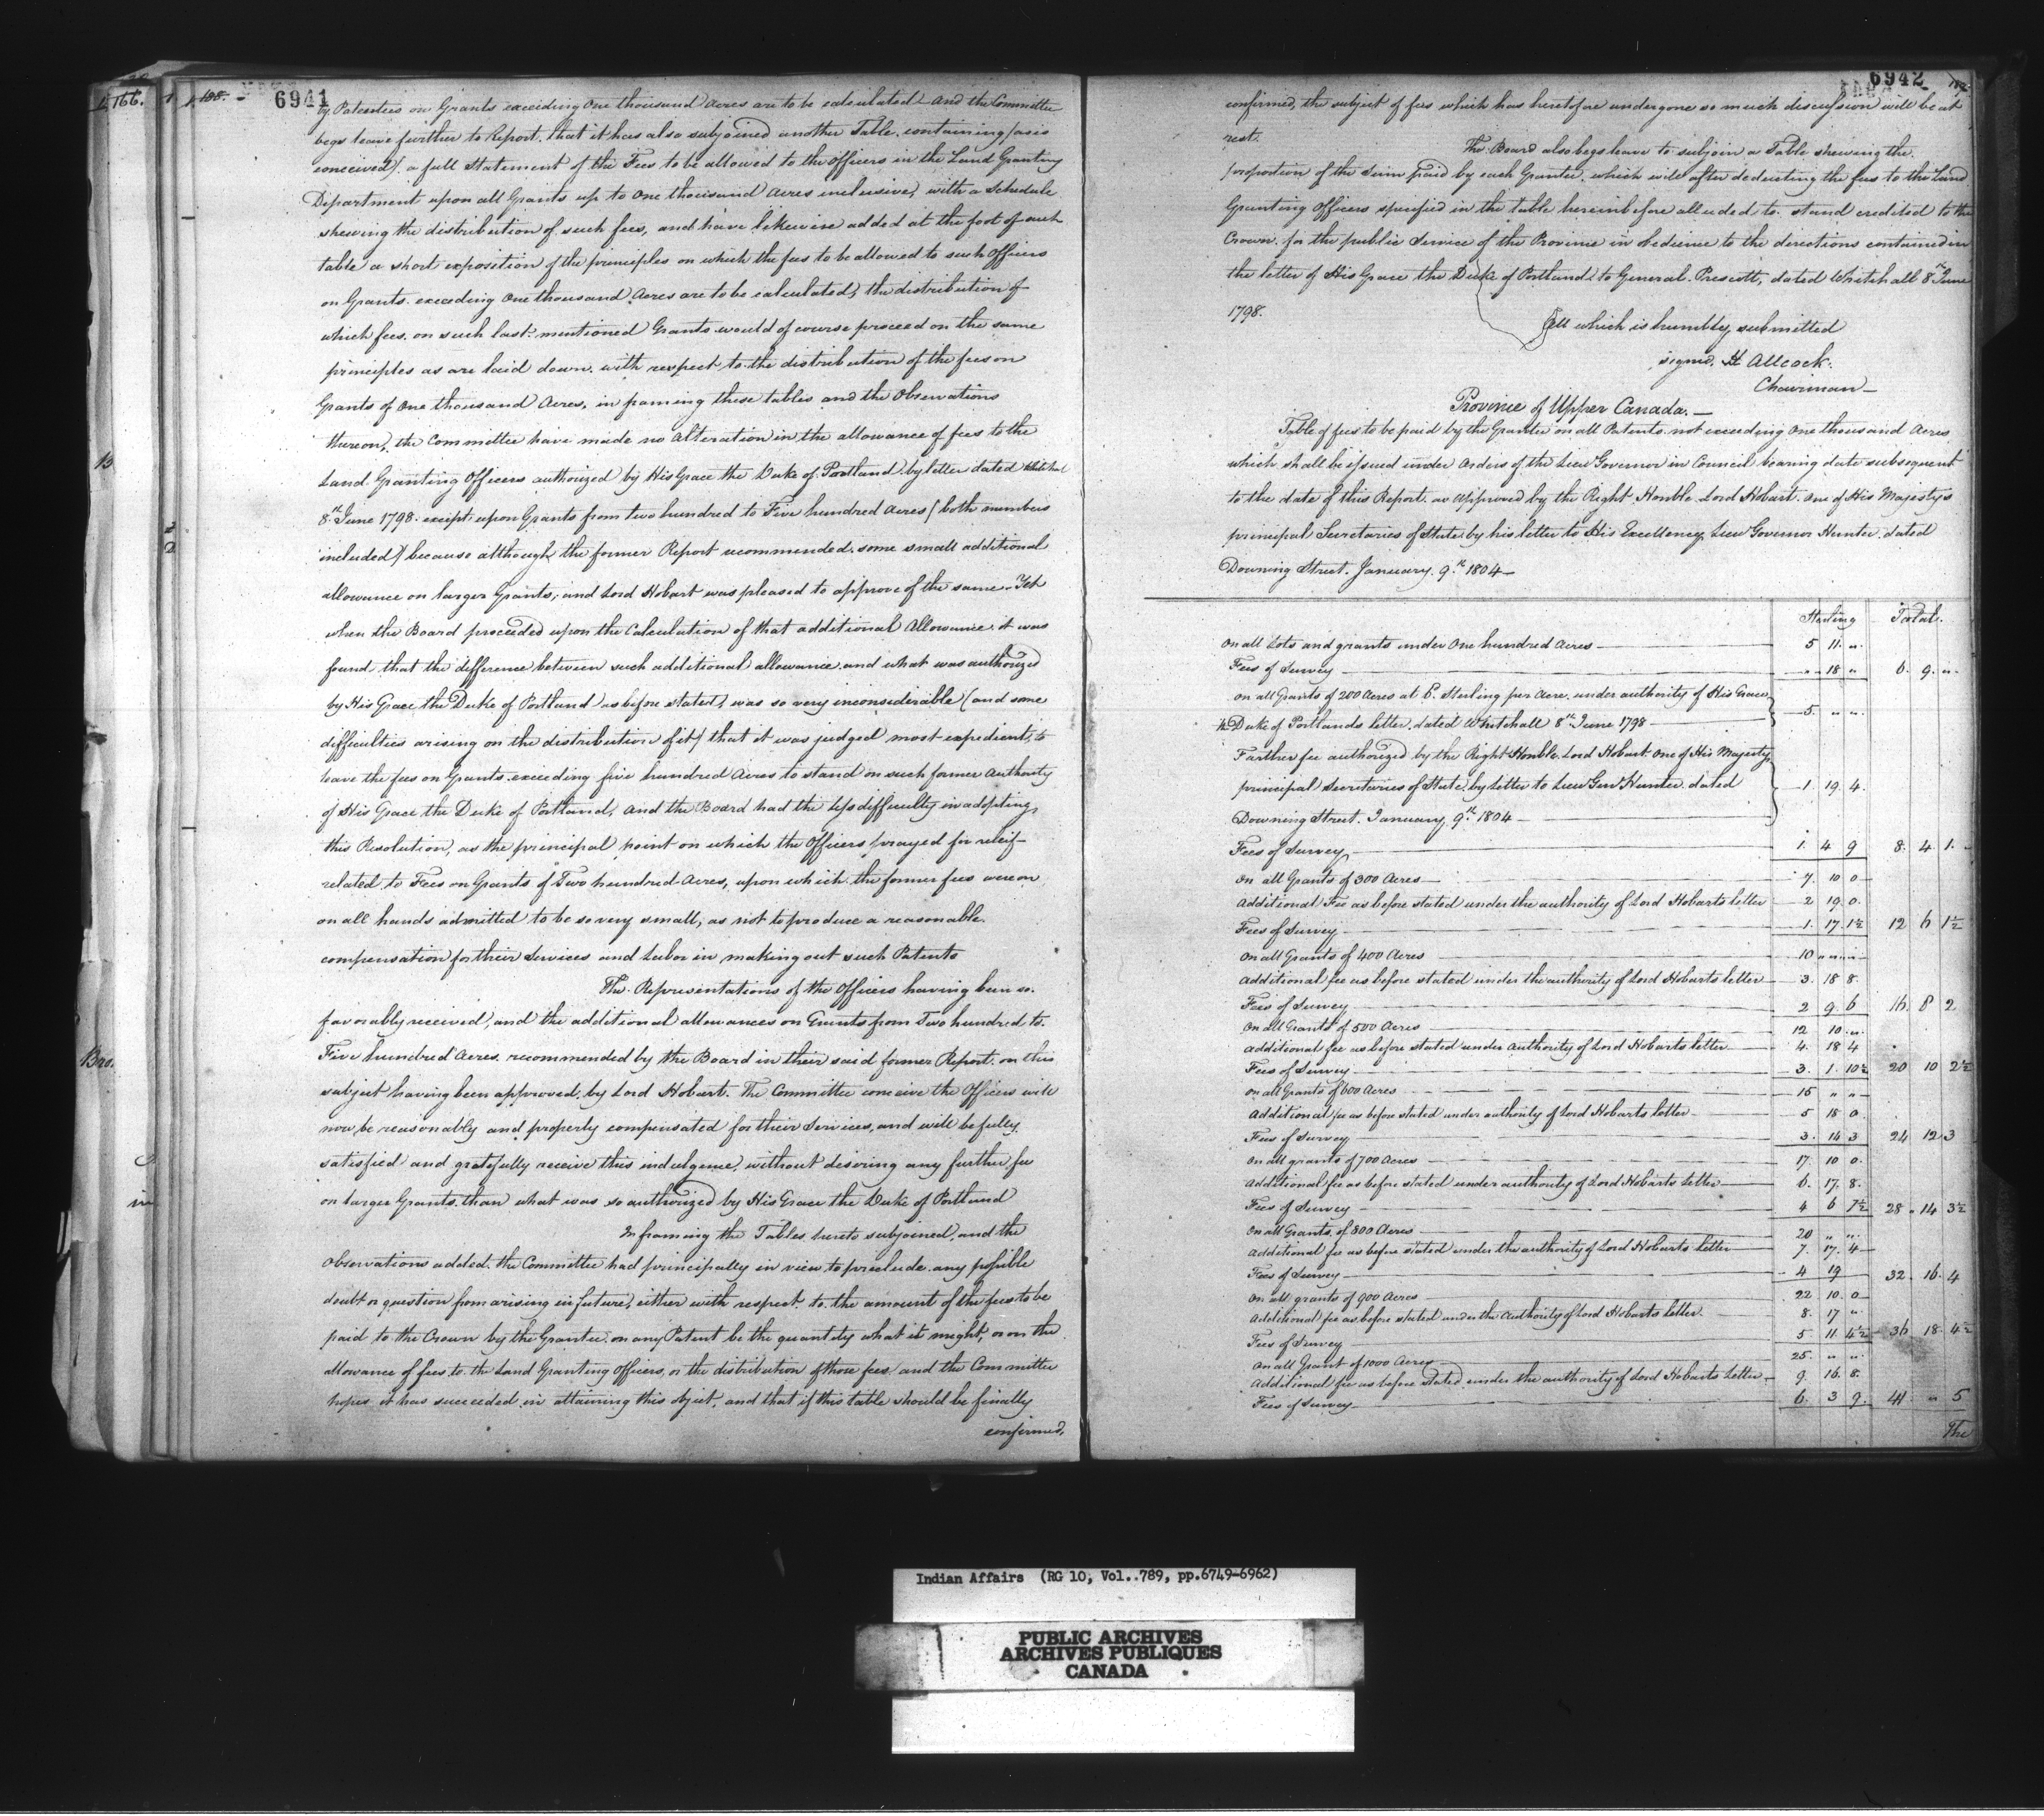 166.
188.
6941
by Patentees on Grants exceeding One thousand Acres are to be calculated and the Committee
begs leave further to Report, that it has also subjoined another Table, containing (as is
conceived) a full Statement of the Fees to be allowed to the officers in the Land Granting
Department upon all Grants up to One thousand Acres inclusive, with a Schedule
shewing the distribution of such fees, and have likewise added at the foot of such
table a short exposition of the principles on which the fees to be allowed to such Officers
on Grants exceeding One thousand Acres are to be calculated, the distribution of
which fees on such last mentioned Grants would of course proceed on the same
principles as are laid down with respect to the distribution of the fees on
Grants of One thousand Acres, in framing these tables and the Observations
thereon, the Committee have made no alteration in the allowance of fees to the
Land Granting Officers authorized by His Grace the Duke of Portland by letter dated Whitehall
8th June 1798 except upon Grants from two hundred to Five hundred Acres (both numbers
included) because although the former Report recommended some small additional
allowance on larger Grants, and Lord Hobart was pleased to approve of the same. Yet
when the Board proceeded upon the Calculation of that additional Allowance it was
found that the difference between such additional allowance and what was authorized
by His Grace the Duke of Portland as before stated, was so very inconsiderable (and some
difficulties arising on the distribution of it) that it was judged most expedient to
leave the fees on Grants exceeding five hundred Acres to stand on such former Authority
of His Grace the Duke of Portland, and the Board had the less difficulty in adopting
this Resolution, as the principal point on which the Officers prayed for releif
related to Fees on Grants of Two hundred Acres, upon which the former fees were on
on all hands admitted to be so very small, as not to produce a reasonable
compensation for their Services and Labor in making out such Patents
The Representations of the Officers having been so
favorably received, and the additional allowances on Grants from Two hundred to
Five hundred Acres recommended by the Board in their said former Report on this
subject having been approved by Lord Hobart. The Committee conceive the Officers will
now be reasonably and properly compensated for their Services, and will be fully
satisfied and gratefully receive this indulgence, without desiring any further fee
on larger Grants than what was so authorized by His Grace the Duke of Portland
In framing the Tables hereto subjoined, and the
Observations added, the Committee had principally in view to preclude any possible
doubt or question from arising in future, either with respect to the amount of the fees to be
paid to the Crown by the Grantee on any Patent be the quantity what it might, or on the
allowance of fees to the Land Granting Officers, or the distribution of those fees and the Committee
hopes it has succeeded in attaining this object, and that if this table should be finally
confirmed,
6942
confirmed, the subject of fees which has heretofore undergone so much discussion will be at
rest.
The Board also begs leave to subjoin a Table shewing the
proportion of the sum paid by each Grantee, which will after deducting the fees to the Land
Granting Officers specified in the table hereinbefore alluded to stand credited to the
Crown for the public Service of the Province in obedience to the directions contained in
the letter of His Grace the Duke of Portland to General Prescott, dated Whitehall 8th June
1798.
All which is humbly submitted
signed, H Allcock.
Chairman
Province of Upper Canada.
Table of fees to be paid by the Grantee on all Patents not exceeding One thousand Acres
which shall be issued under Orders of the Lieu Governor in Council bearing date subsequent
to the date of this Report as approved by the Right Honble Lord Hobart One of His Majestys
principal Secretaries of State by his letter to His Excellency Lieu Governor Hunter dated
Downing Street. January 9th 1804
Sterling Total.
On all Lots and grants under One hundred Acres 5 11 "
Fees of Survey " 18 " 6. 9. "
On all Grants of 200 Acres at 6d Sterling per Acre under authority of His Grace
the Duke of Portlands letter dated Whitehall 8th June 1798 5. " "
Further fee authorized by the Right Honble Lord Hobart One of His Majestys
principal Secretaries of State by letter to Lieu Genl Hunter dated 1 19 4.
Downing Street. January 9th 1804
Fees of Survey 1. 4 9 8. 4 1.
On all Grants of 300 Acres 7. 10 0
Additional Fee as before stated under the authority of Lord Hobarts letter 2 19 0.
Fees of Survey 1. 17. 1½ 12 6 1½
On all Grants of 400 Acres 10 " "
Additional fee as before stated under the authority of Lord Hobarts letter 3. 18 8.
Fees of Survey 2 9. 6 16. 8 2
On all Grants of 500 Acres 12 10 "
Additional fee as before stated under authority of Lord Hobarts letter 4. 18 4
Fees of Survey 3. 1. 10½ 20 10 2½
On all Grants of 600 Acres 15 " "
Additional fee as before stated under authority of Lord Hobarts letter 5 18 0.
Fees of Survey 3. 14 3 24 12 3
On all grants of 700 Acres 17. 10 0.
Additional fee as before stated under authority of Lord Hobarts letter 6. 17. 8.
Fees of Survey 4 6 7½ 28 14 3½
On all Grants of 800 Acres 20 " "
Additional fee as before stated under the authority of Lord Hobarts letter 7. 17. 4
Fees of Survey 4 19 32. 16. 4
On all grants of 900 Acres 22 10. 0
Additional fee as before stated under the Authority of Lord Hobarts letter. 8. 17 "
Fees of Survey 5 11 4½ 36 18. 4½
On all Grant of 1000 Acres 25. " "
Additional fee as before stated under the authority of Lord Hobarts Letter 9. 16. 8.
Fees of Survey 6. 3 9. 41. " 5
The
Indian Affairs (RG 10, Vol..789, pp.6749-6962)
PUBLIC ARCHIVES
ARCHIVES PUBLIQUES
CANADA